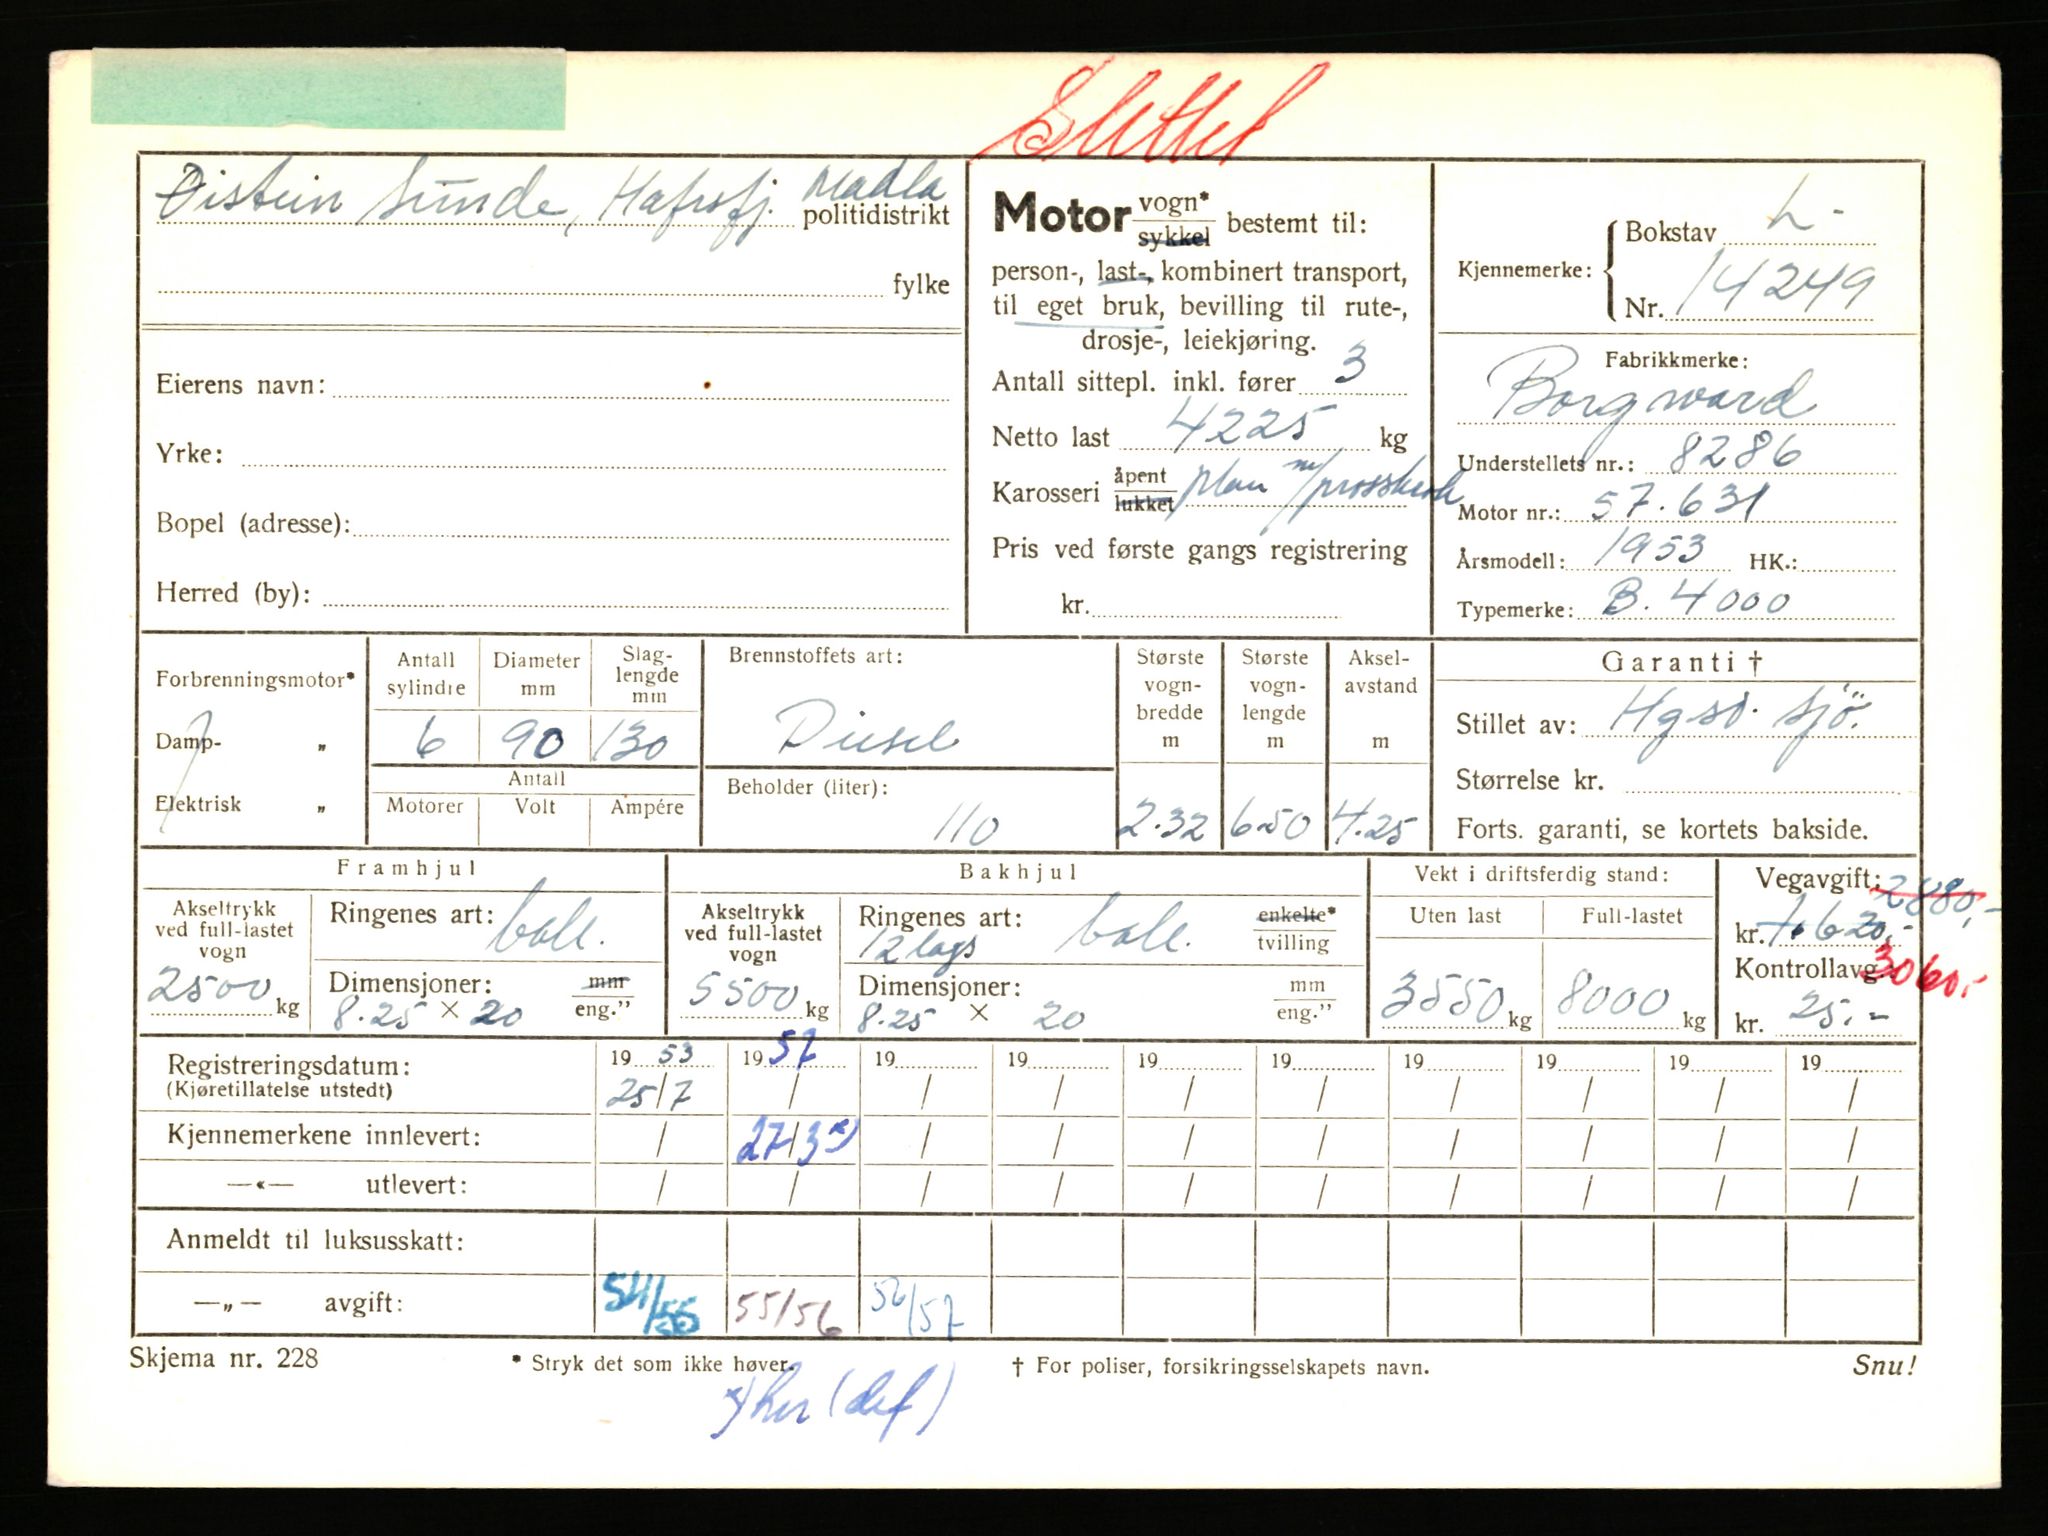 Slettet
Øistein Sunde, Hafrsfj. Madla
politidistrikt
fylke
Eierens navn:
Yrke:
Bopel (adresse):
Herred (by):
Motor vogn* sykkel bestemt til:
person-, last-, kombinert transport,
til eget bruk, bevilling til rute-,
drosje-, leiekjøring.
Antall sittepl. inkl. fører 3
Netto last 4225 kg
Karosseri åpent lukket plan m/
Pris ved første gangs registrering
kr.
Kjennemerke: Bokstav L-
Nr. 14249
Fabrikkmerke:
Borgward
Understellets nr.: 8286
Motor nr.: 57.631
Årsmodell: 1953 HK.:
Typemerke: B. 4000
Forbrenningsmotor*
Damp- „
Elektrisk „
Antall sylindre
6
Diameter mm
90
Slag-lengde mm
130
Antall
Motorer Volt Ampére
Brennstoffets art:
Diesel
Beholder (liter):
110
Største vogn-bredde m
2.32
Største vogn-lengde m
6.50
Aksel-avstand m
4.25
Garanti †
Stillet av: Hgsd. Sjø.
Størrelse kr.
Forts. garanti, se kortets bakside.
Framhjul
Akseltrykk
ved full-lastet
vogn
2500 kg
Ringenes art: ball.
Dimensjoner: mm
8.25 × 20 eng."
Bakhjul
Akseltrykk
ved full-lastet
vogn
5500 kg
Ringenes art: ball. enkelte*
12 lags tvilling
Dimensjoner: mm
8.25 × 20 eng."
Vekt i driftsferdig stand:
Uten last Full-lastet
3550 kg 8000 kg
Vegavgift: 2880,-
kr. 1.620,-
Kontrollavg. 3060,-
kr. 25.-
Registreringsdatum: 19 53 19 57 19 19 19 19 19 19 19 19
(Kjøretillatelse utstedt) 25/7 / / / / / / / / /
Kjennemerkene innlevert: / 27/3 x) / / / / / / / /
—«— utlevert: / / / / / / / / / /
Anmeldt til luksusskatt:
—„— avgift: 54/55 55/56 56/57
Skjema nr. 228 * Stryk det som ikke høver. † For poliser, forsikringsselskapets navn. Snu!
x) her (def)